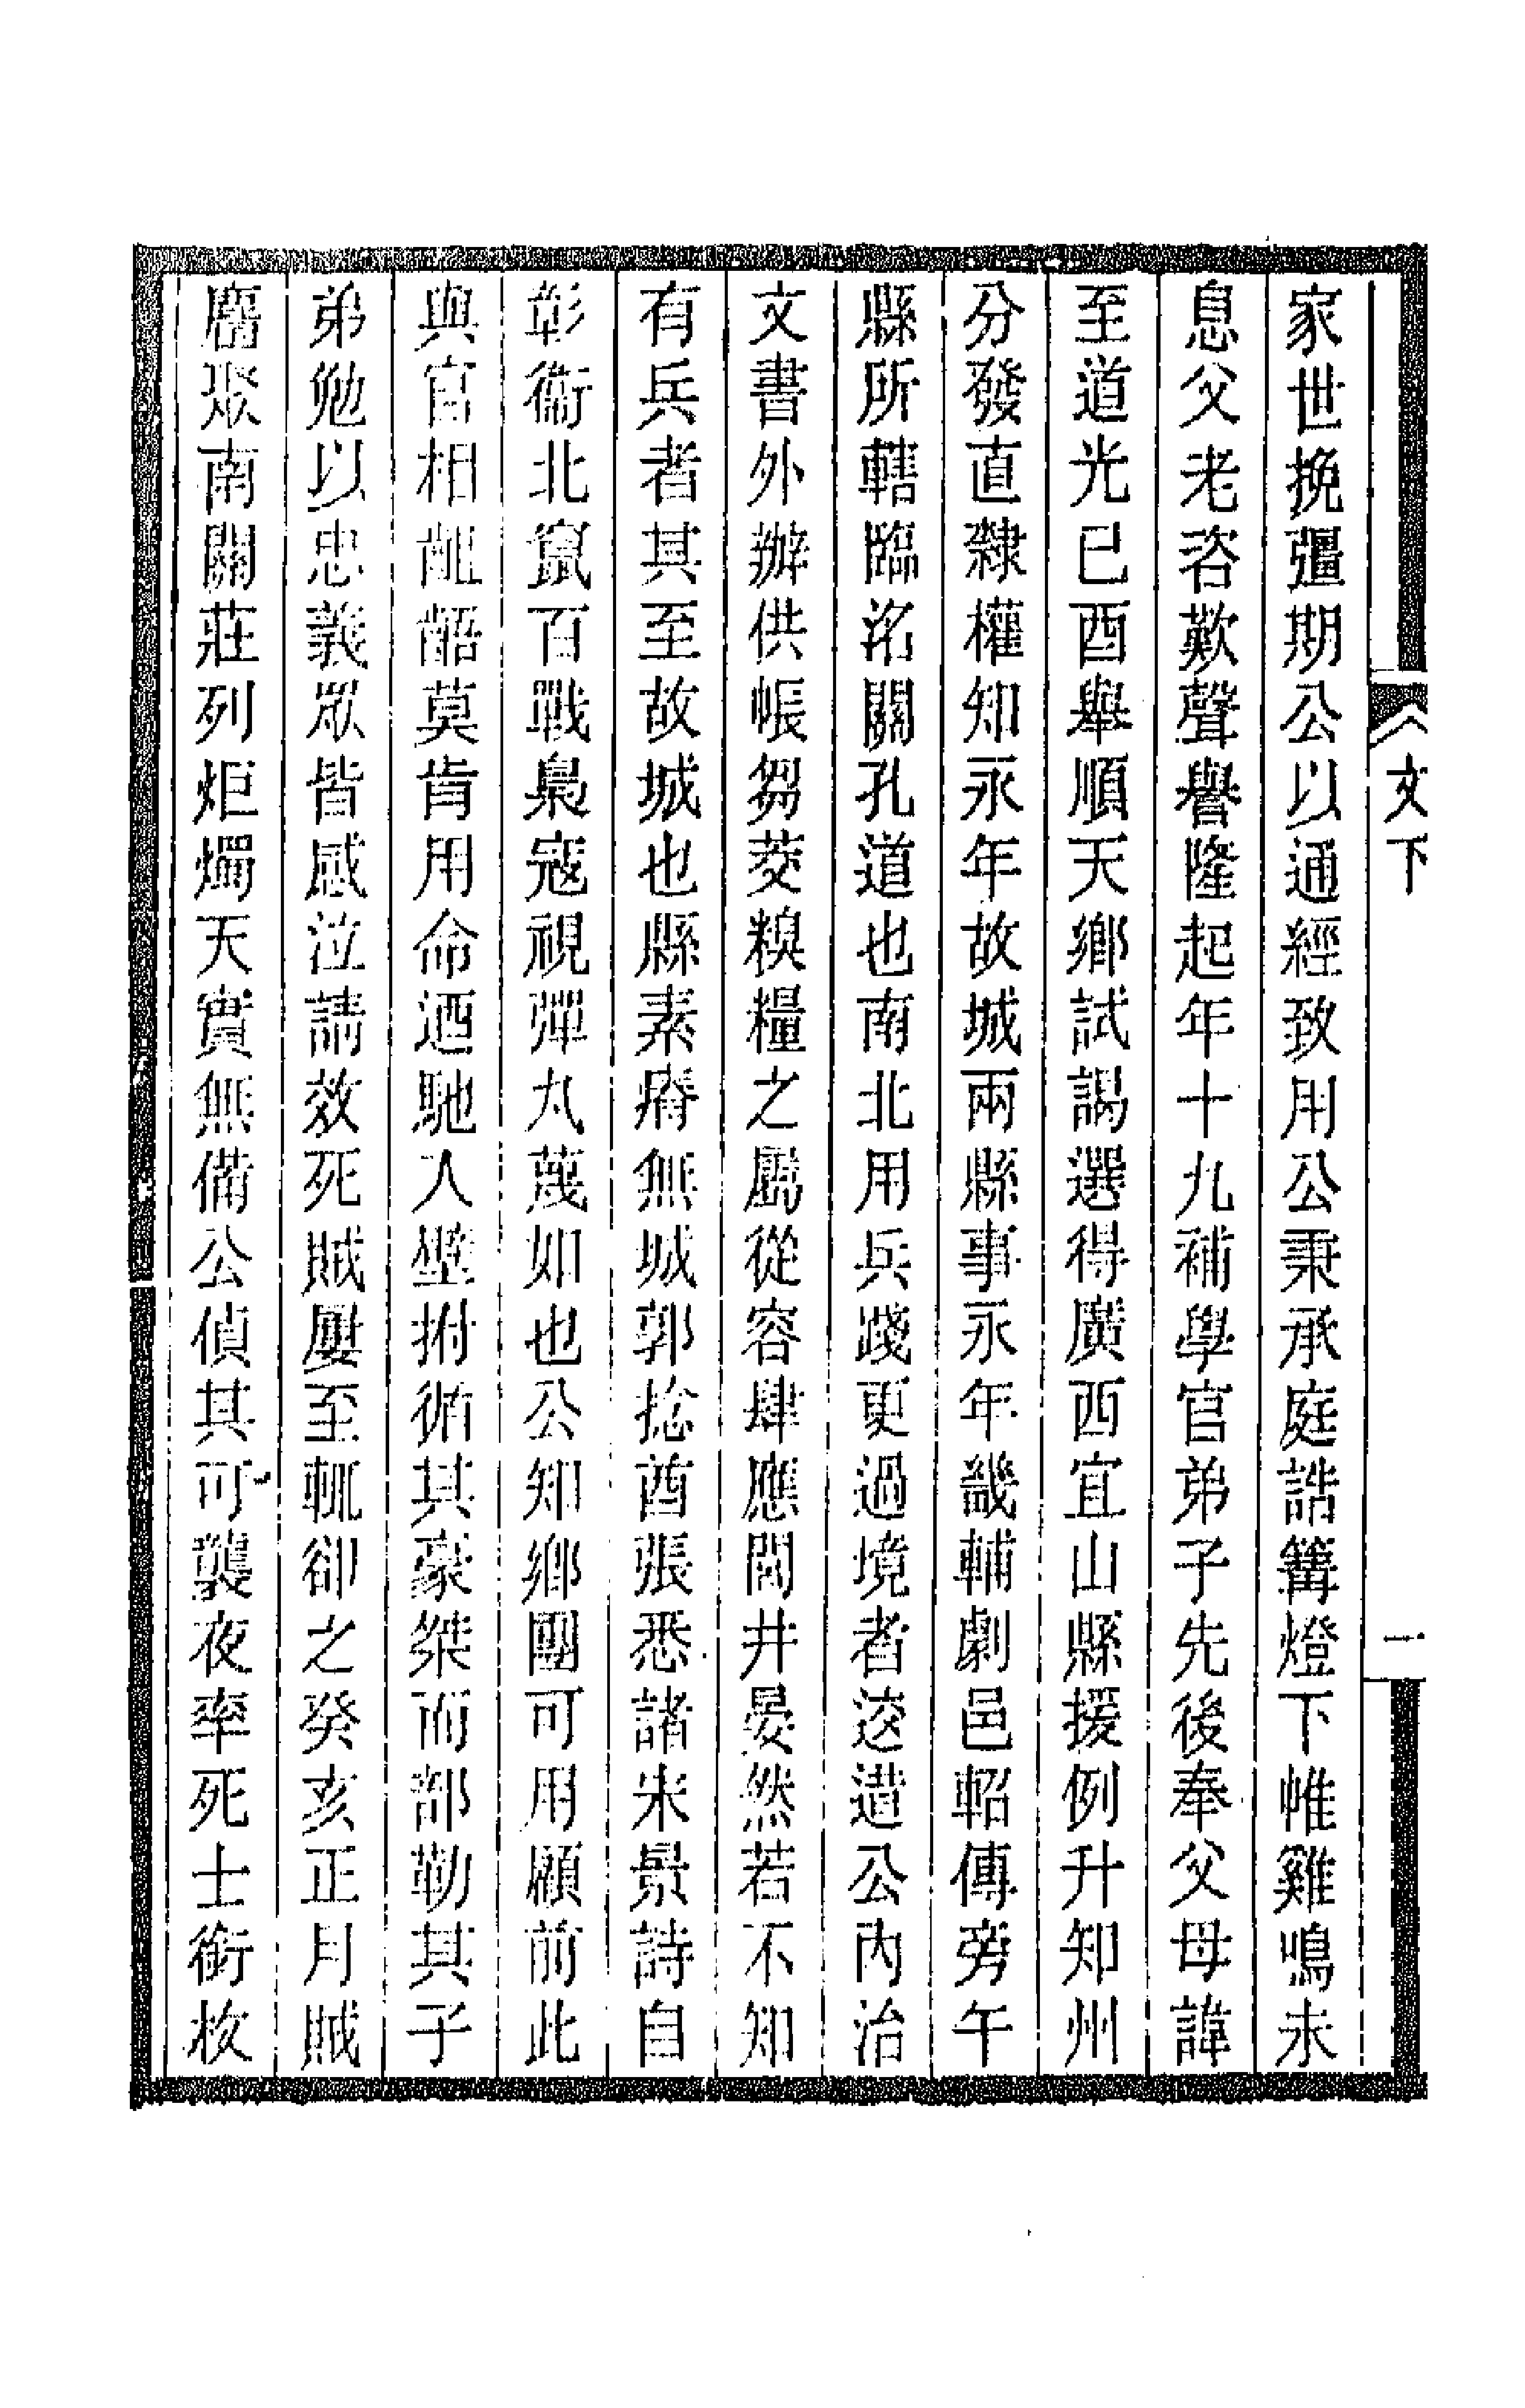 文下
一
家世挽彊期公以通經致用公秉承庭誥篝燈下帷雞鳴未
息父老咨歎聲譽隆起年十九補學官弟子先後奉父母諱
至道光已酉舉順天鄉試謁選得廣西宜山縣援例升知州
分發直隸權知永年故城兩縣事永年畿輔劇邑軺傳旁午
縣所轄臨洺關孔道也南北用兵踐更過境者遝遣公內治
文書外辦供帳芻茭糗糧之屬從容肆應閭井晏然若不知
有兵者其至故城也縣素瘠無城郭捻酋張悉諸朱景詩自
彰衞北竄百戰梟寇視彈丸蔑如也公知鄉團可用顧前此
與官相齟齬莫肯用命迺馳入壁拊循其豪桀而部勒其子
弟勉以忠義眾皆感泣請效死賊屢至輒卻之癸亥正月賊
麕聚南關莊列炬燭天實無備公偵其可襲夜率死士銜枚